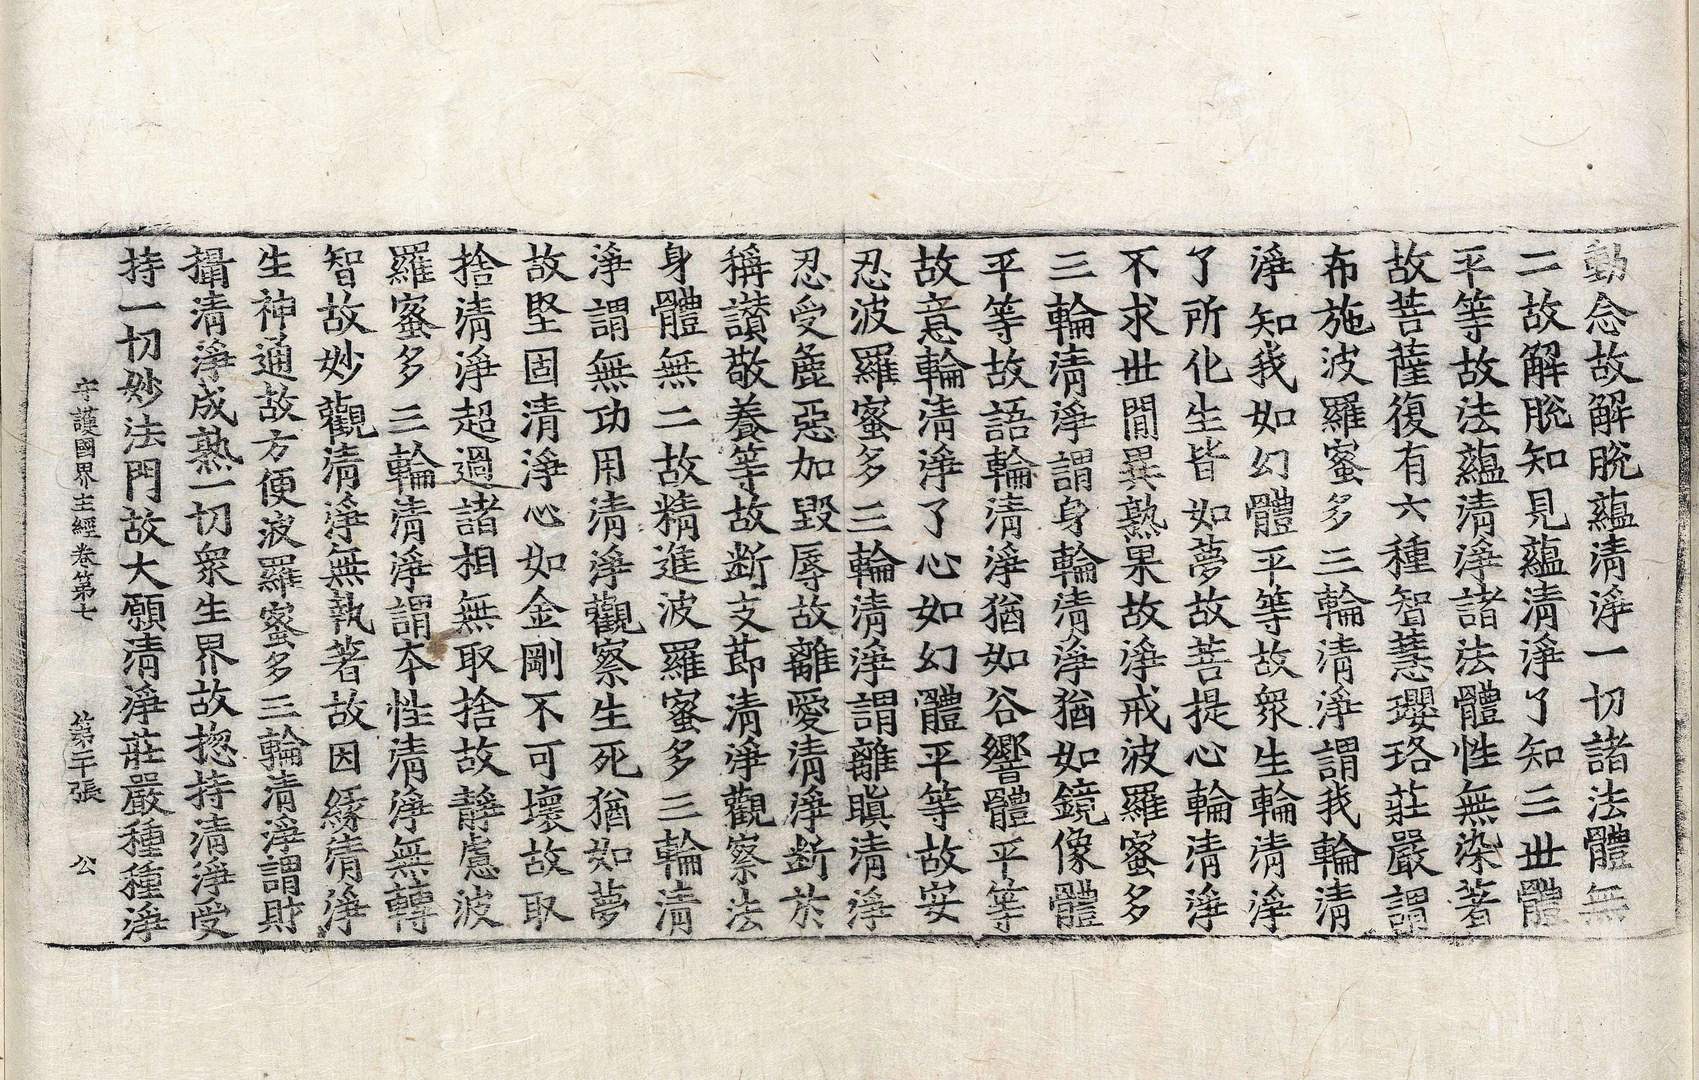 動念故解脫蘊清淨一切諸法體無
二故解脫知見蘊清淨了知三世體
平等故法蘊清淨諸法體性無染著
故菩薩復有六種智慧瓔珞莊嚴謂
布施波羅蜜多三輪清淨謂我輪清
淨知我如幻體平等故衆生輪清淨
了所化生皆如夢故菩提心輪清淨
不求世閒異熟果故淨戒波羅蜜多
三輪清淨謂身輪清淨猶如鏡像體
平等故語輪清淨猶如谷響體平等
故意輪清淨了心如幻體平等故安
忍波羅蜜多三輪清淨謂離瞋清淨
忍受麁惡加毀辱故離愛清淨斷於
稱讃敬養等故断支節清淨觀察法
身體無二故精進波羅蜜多三輪清
淨謂無功用清淨觀察生死猶如夢
故堅固清淨心如金剛不可壞故取
捨清淨超過諸相無取捨故靜慮波
羅蜜多三輪清淨謂本性清淨無轉
智故妙觀清淨無執著故因緣清淨
生神通故方便波羅蜜多三輪清淨謂財
攝清淨成熟一切衆生界故揔持清淨受
持一切妙法門故大願清淨莊嚴種種淨
守護國界主經卷第七　第二十張　公